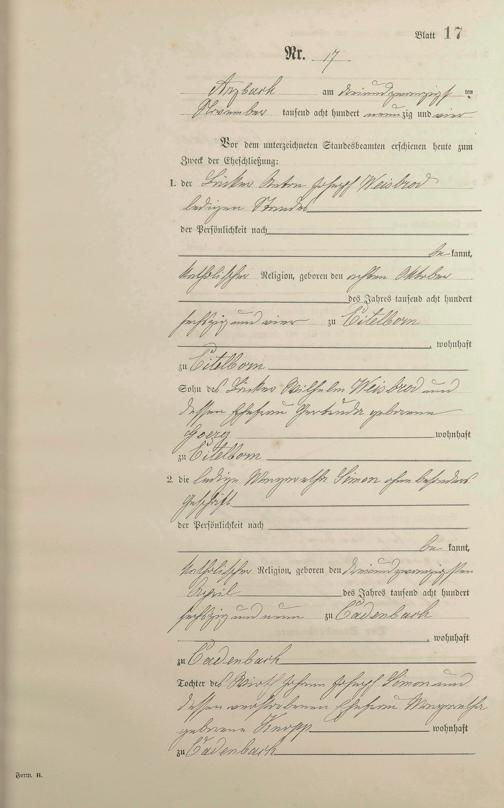 Blatt 17
Nr. 17
Arzbach am dreiundzwanzigsten
November tausend acht hundert neunzig und vier
Vor dem unterzeichneten Standesbeamten erschienen heute zum
Zweck der Eheschließung:
1. der Bäcker Anton Joseph Weisbrod
ledigen Standes
der Persönlichkeit nach
be kannt,
katholischer Religion, geboren den achten Oktober
des Jahres tausend acht hundert
sechszig und vier zu Eitelborn
, wohnhaft
zu Eitelborn
Sohn des Bäcker Wilhelm Weisbrod und
dessen Ehefrau geborene
Goerg wohnhaft
zu Eitelborn
2. die ledige Margaretha Simon ohne besonderes
Geschäft
der Persönlichkeit nach
be kannt,
katholischer Religion, geboren den dreiundzwanzigsten
April des Jahres tausend acht hundert
sechszig und neun zu Cadenbach
, wohnhaft
zu Cadenbach
Tochter des Wirth Johann Joseph Simon und
dessen verstorbenen Ehefrau Margaretha
geborene Knopp wohnhaft
zu Cadenbach
Form. B.